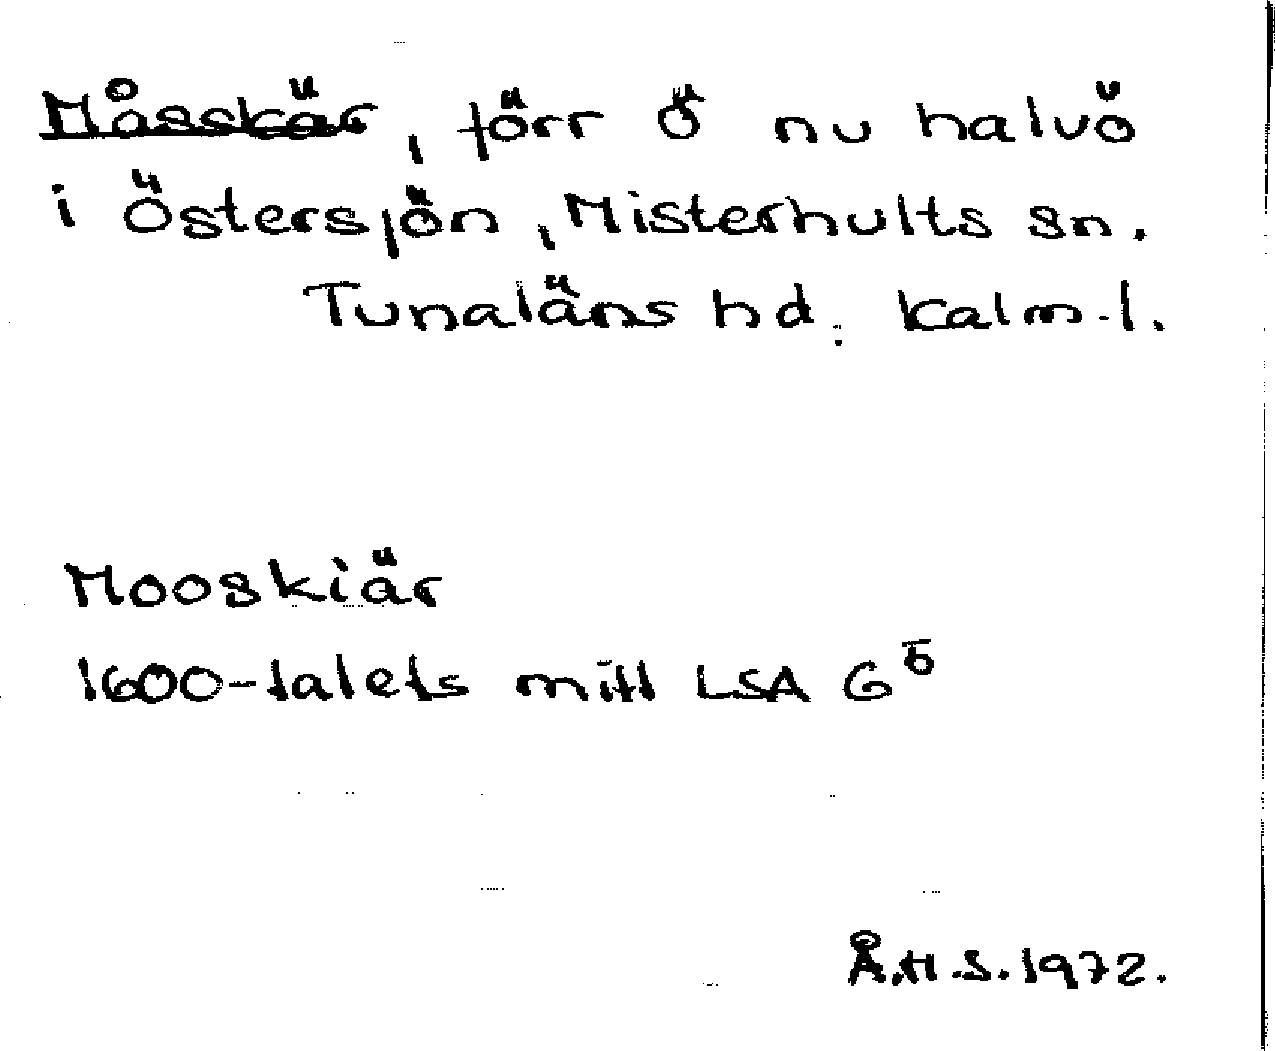 Måsskär, förr ö nu halvö
i Östersjön, Misterhults sn.
Tunaläns hd. Kalm.l.
Mooskiär
1600-talets mitt LSA G⁵
Å.H.S. 1972.